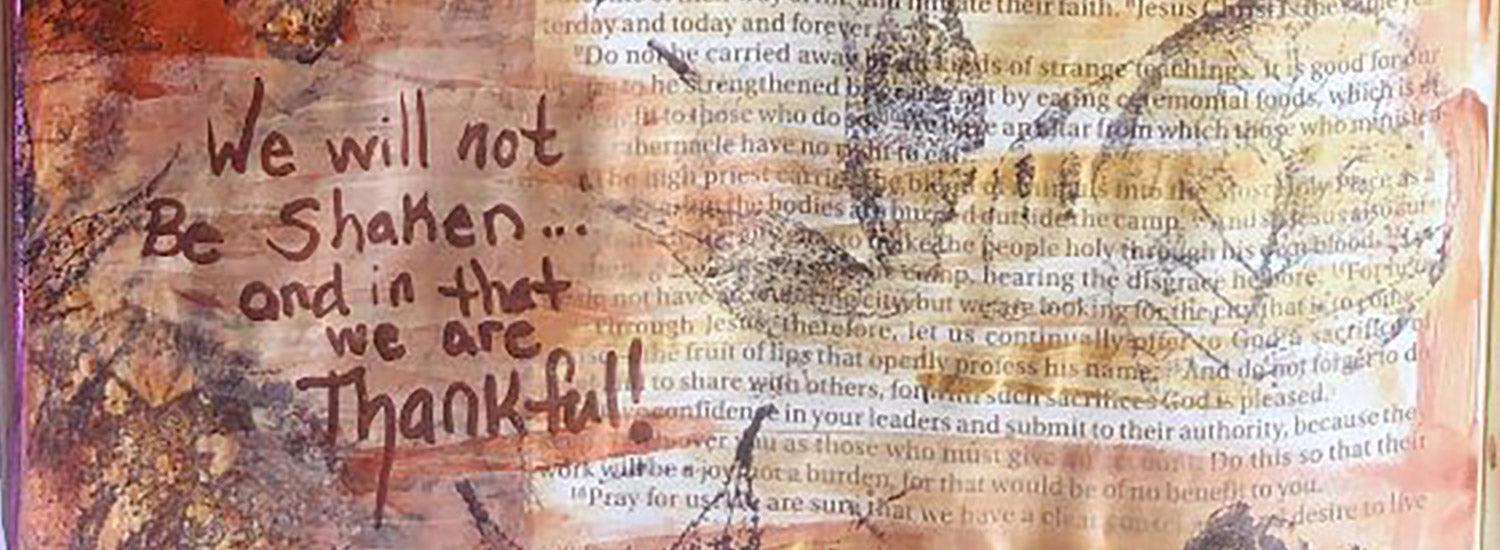 We will not
Be Shaken...
and in that
we are
Thankful!
their faith. "Jesus Christ is the same yes
terday and today and forever
"Do not be carried away by all kinds of strange teachings. It is good for our
to be strengthened by not by eating ceremonial foods, which is of
fit to those who do so. We have an altar from which those who minister
abernacle have no right to eat.
The high priest carries the blood of animals into the Most Holy Place as a
the bodies are burned outside the camp. And so Jesus also suf
to make the people holy through his own blood. Let
camp, bearing the disgrace he bore. 14For
do not have an enduring city, but we are looking for the city that is to come.
Through Jesus, therefore, let us continually offer to God a sacrifice of
the fruit of lips that openly profess his name. And do not forget to do
to share with others, for with such sacrifices God is pleased.
confidence in your leaders and submit to their authority, because the
over you as those who must give an account. Do this so that their
work will be a joy, not a burden, for that would be of no benefit to you.
18Pray for us. We are sure that we have a clear desire to live